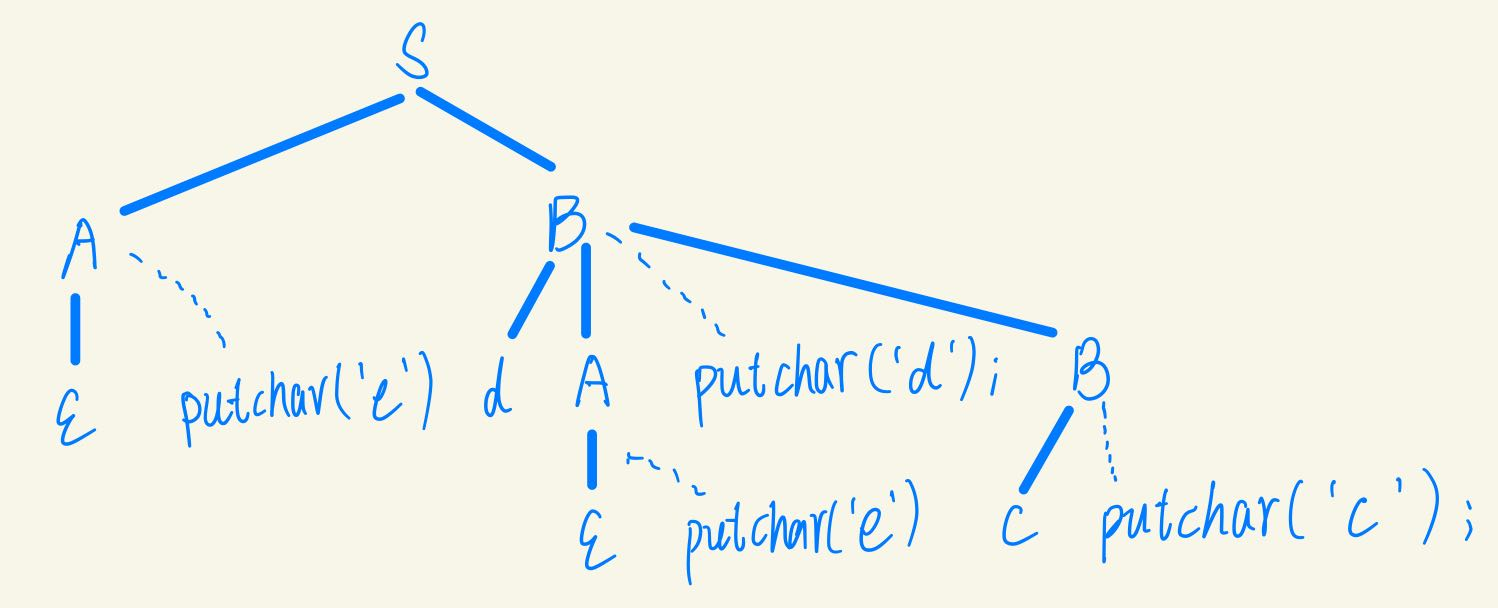 S
A B
ε putchar('e') d A putchar('d'); B
ε putchar('e') c putchar('c');